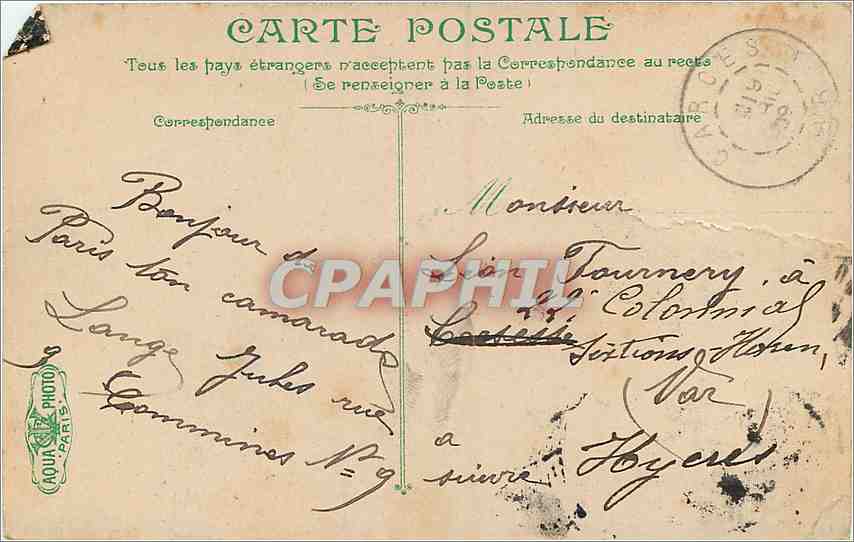 CARTE POSTALE
Tous les pays étrangers n'acceptent pas la Correspondance au recto
(Se renseigner à la Poste)
Correspondance
Adresse du destinataire
CARCES VAR
Bonjour de
Paris ton camarade
Lange Jules rue
Commines N=9
9
AQUA PHOTO
PARIS
Monsieur
Léon Tournery, à
22e Colonnial
Hyeres
(Var)
a
suivre
CPAPHIL